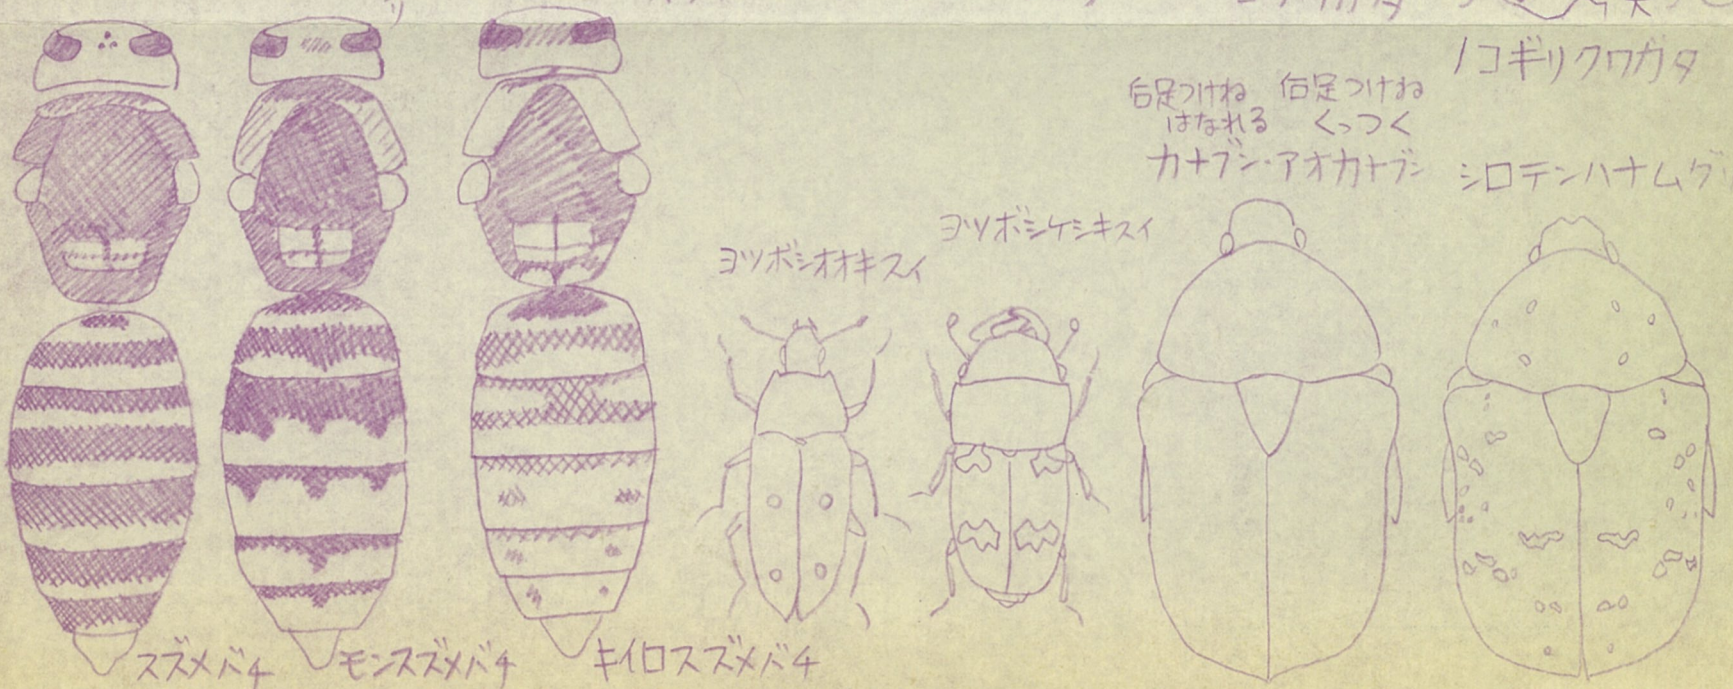 ノコギリクワガタ
後足つけね 後足つけね
はなれる くっつく
カナブン・アオカナブン
シロテンハナムグ
ヨツボシケシキスイ
ヨツボシオオキスイ
スズメバチ
モンスズメバチ
キイロスズメバチ